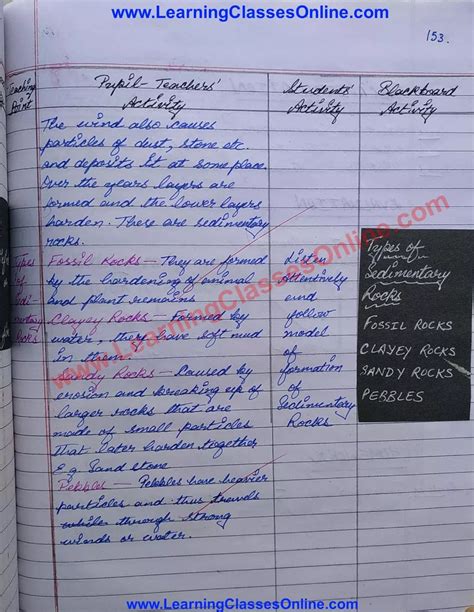 www.LearningClassesOnline.com
153.
Teaching Point
Pupil-Teachers' Activity
Students' Activity
Blackboard Activity
The wind also causes
particles of dust, stone etc.
and deposits it at some place.
Over the years layers are
formed and the lower layers
harden. These are sedimentary
rocks.
Types of Sedimentary Rocks
Fossil Rocks — They are formed
by the hardening of animal
and plant remains
Clayey Rocks — Formed by
water, they have soft mud
in them.
Sandy Rocks — Caused by
erosion and breaking up of
larger rocks that are
made of small particles
that later harden together
E.g Sand stone
Pebbles — Pebbles have heavier
particles and thus travels
while through strong
winds or water.
Listen
attentively
and
follow
model
of
formation
of
Sedimentary
Rocks
Types of
Sedimentary
Rocks
FOSSIL ROCKS
CLAYEY ROCKS
SANDY ROCKS
PEBBLES
www.LearningClassesOnline.com
www.LearningClassesOnline.com